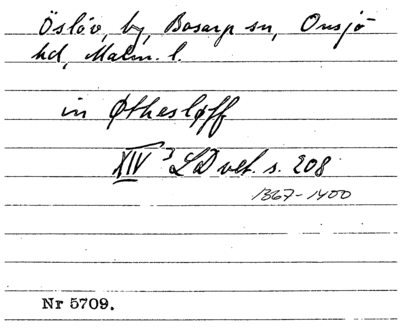 Öslöv, by, Bosarp sn, Onsjö
hd, Malm. l.
in Øthesløff
XIV 3 LD vet. s. 208
1367-1400
Nr 5709.